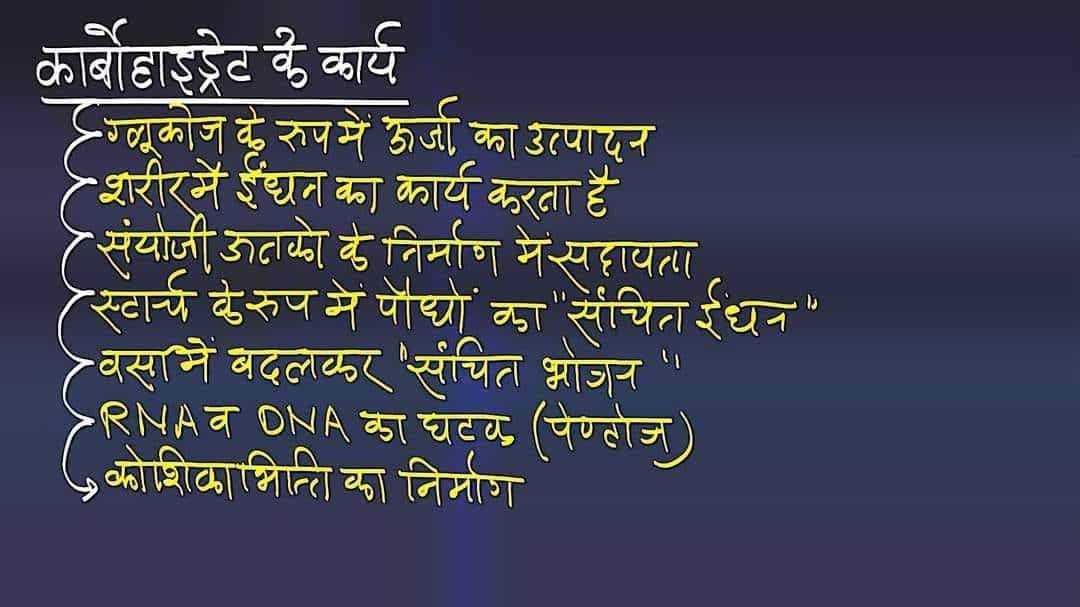 कार्बोहाइड्रेट के कार्य
ग्लूकोज के रुप में ऊर्जा का उत्पादन
शरीर में ईंधन का कार्य करता है
संयोजी ऊतको के निर्माण में सहायता
स्टार्च के रुप में पौधों का "संचित ईंधन"
वसा में बदलकर "संचित भोजन"
RNA व DNA का घटक (पेण्टोज)
कोशिका भित्ति का निर्माण